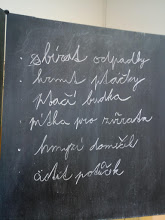 · sbírat odpadky
· krmit ptáčky
ptačí budka
· pítka pro zvířata
· hmyzí domeček
čistit potůček